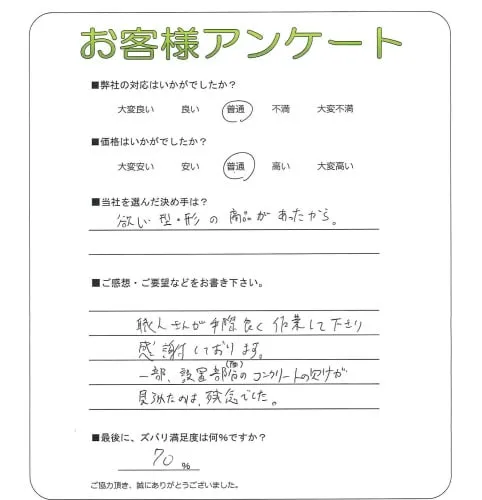 お客様アンケート
■弊社の対応はいかがでしたか？
大変良い 良い 普通 不満 大変不満
■価格はいかがでしたか？
大変安い 安い 普通 高い 大変高い
■当社を選んだ決め手は？
欲しい型・形の商品があったから。
■ご感想・ご要望などをお書き下さい。
職人さんが手際良く作業して下さり
感謝しております。
一部、設置部のコンクリートの欠けが
見られたのは、残念でした。
■最後に、ズバリ満足度は何％ですか？
70 %
ご協力頂き、誠にありがとうございました。